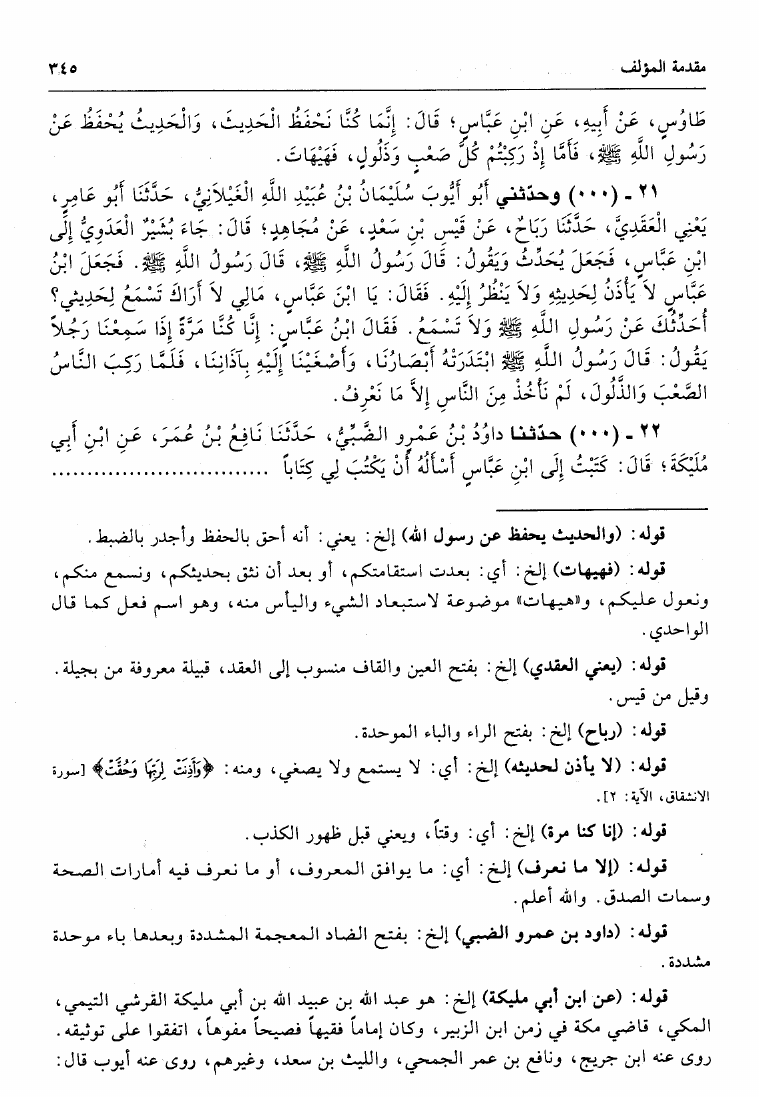 مقدمة المؤلف
٣٤٥
طَاوُسٍ، عَنْ أَبِيهِ، عَنِ ابْنِ عَبَّاسٍ؛ قَالَ: إِنَّمَا كُنَّا نَحْفَظُ الْحَدِيثَ، وَالْحَدِيثُ يُحْفَظُ عَنْ
رَسُولِ اللَّهِ ﷺ، فَأَمَّا إِذْ رَكِبْتُمْ كُلَّ صَعْبٍ وَذَلُولٍ، فَهَيْهَاتَ.
٢١ - (٠٠٠) وحدّثني أَبُو أَيُّوبَ سُلَيْمَانُ بْنُ عُبَيْدِ اللَّهِ الْغَيْلاَنِيُّ، حَدَّثَنَا أَبُو عَامِرٍ،
يَعْنِي الْعَقَدِيَّ، حَدَّثَنَا رَبَاحٌ، عَنْ قَيْسِ بْنِ سَعْدٍ، عَنْ مُجَاهِدٍ؛ قَالَ: جَاءَ بُشَيْرٌ الْعَدَوِيُّ إِلَى
ابْنِ عَبَّاسٍ، فَجَعَلَ يُحَدِّثُ وَيَقُولُ: قَالَ رَسُولُ اللَّهِ ﷺ، قَالَ رَسُولُ اللَّهِ ﷺ. فَجَعَلَ ابْنُ
عَبَّاسٍ لاَ يَأْذَنُ لِحَدِيثِهِ وَلاَ يَنْظُرُ إِلَيْهِ. فَقَالَ: يَا ابْنَ عَبَّاسٍ، مَالِي لاَ أَرَاكَ تَسْمَعُ لِحَدِيثِي؟
أُحَدِّثُكَ عَنْ رَسُولِ اللَّهِ ﷺ وَلاَ تَسْمَعُ. فَقَالَ ابْنُ عَبَّاسٍ: إِنَّا كُنَّا مَرَّةً إِذَا سَمِعْنَا رَجُلاً
يَقُولُ: قَالَ رَسُولُ اللَّهِ ﷺ ابْتَدَرَتْهُ أَبْصَارُنَا، وَأَصْغَيْنَا إِلَيْهِ بِآذَانِنَا، فَلَمَّا رَكِبَ النَّاسُ
الصَّعْبَ وَالذَّلُولَ، لَمْ نَأْخُذْ مِنَ النَّاسِ إِلاَّ مَا نَعْرِفُ.
٢٢ - (٠٠٠) حدّثنا دَاوُدُ بْنُ عَمْرٍو الضَّبِّيُّ، حَدَّثَنَا نَافِعُ بْنُ عُمَرَ، عَنِ ابْنِ أَبِي
مُلَيْكَةَ؛ قَالَ: كَتَبْتُ إِلَى ابْنِ عَبَّاسٍ أَسْأَلُهُ أَنْ يَكْتُبَ لِي كِتَاباً ..............................
قوله: (والحديث يحفظ عن رسول الله) إلخ: يعني: أنه أحق بالحفظ وأجدر بالضبط.
قوله: (فهيهات) إلخ: أي: بعدت استقامتكم، أو بعد أن نثق بحديثكم، ونسمع منكم،
ونعول عليكم، و«هيهات» موضوعة لاستبعاد الشيء واليأس منه، وهو اسم فعل كما قال
الواحدي.
قوله: (يعني العقدي) إلخ: بفتح العين والقاف منسوب إلى العقد، قبيلة معروفة من بجيلة.
وقيل من قيس.
قوله: (رباح) إلخ: بفتح الراء والباء الموحدة.
قوله: (لا يأذن لحديثه) إلخ: أي: لا يستمع ولا يصغي، ومنه: ﴿وَأَذِنَتْ لِرَبِّهَا وَحُقَّتْ﴾ [سورة
الانشقاق، الآية: ٢].
قوله: (إنا كنا مرة) إلخ: أي: وقتاً، ويعني قبل ظهور الكذب.
قوله: (إلا ما نعرف) إلخ: أي: ما يوافق المعروف، أو ما نعرف فيه أمارات الصحة
وسمات الصدق. والله أعلم.
قوله: (داود بن عمرو الضبي) إلخ: بفتح الضاد المعجمة المشددة وبعدها باء موحدة
مشددة.
قوله: (عن ابن أبي مليكة) إلخ: هو عبد الله بن عبيد الله بن أبي مليكة القرشي التيمي،
المكي، قاضي مكة في زمن ابن الزبير، وكان إماماً فقيهاً فصيحاً مفوهاً، اتفقوا على توثيقه.
روى عنه ابن جريج، ونافع بن عمر الجمحي، والليث بن سعد، وغيرهم، روى عنه أيوب قال: